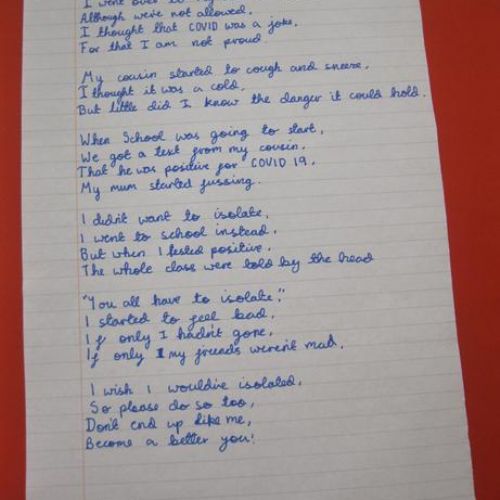 I went over to my
Although we're not allowed.
I thought that COVID was a joke,
For that I am not proud.
My cousin started to cough and sneeze,
I thought it was a cold,
But little did I know the danger it could hold.
When School was going to start,
We got a text from my cousin,
That he was positive for COVID 19,
My mum started fussing.
I didn't want to isolate,
I went to school instead,
But when I tested positive,
The whole class were told by the head
"You all have to isolate,"
I started to feel bad,
If only I hadn't gone,
If only my friends weren't mad.
I wish I would've isolated,
So please do so too,
Don't end up like me,
Become a better you!